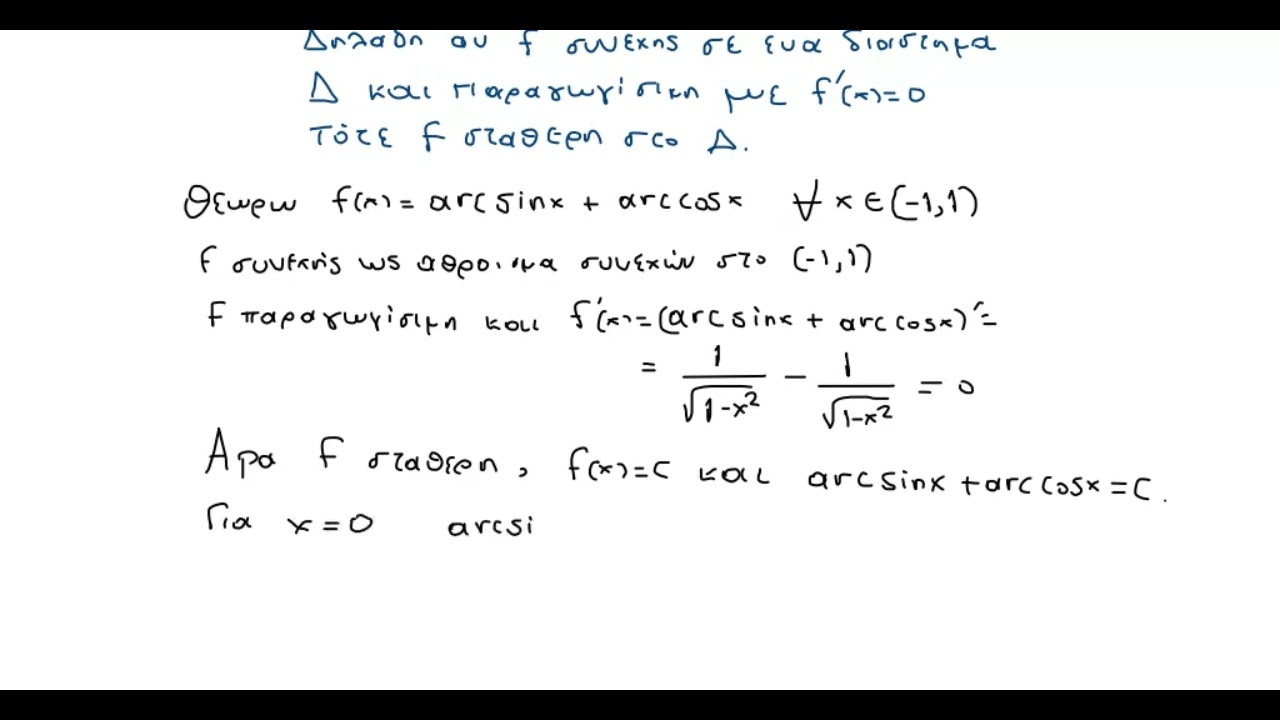 Δηλαδη αν f συνεχης σε ενα διαστημα
Δ και παραγωγίσιμη με f'(x)=0
Τότε f σταθερη στο Δ.
Θεωρω f(x) = arcsinx + arccosx ∀ x ∈ (-1,1)
f συνεχής ως αθροισμα συνεχών στο (-1,1)
f παραγωγίσιμη και f'(x)=(arcsinx + arccosx)'=
= 1/√(1-x²) - 1/√(1-x²) = 0
Αρα f σταθερη, f(x)=c και arcsinx + arccosx = c.
Για x=0 arcsi